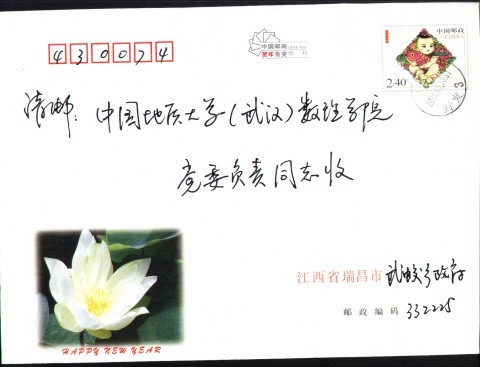 430074
中国邮政
贺年有奖
中国邮政
CHINA
2.40
请邮: 中国地质大学(武汉)数理学院
党委负责同志收
江西省瑞昌市 武蛟乡政府
邮政编码 332225
HAPPY NEW YEAR